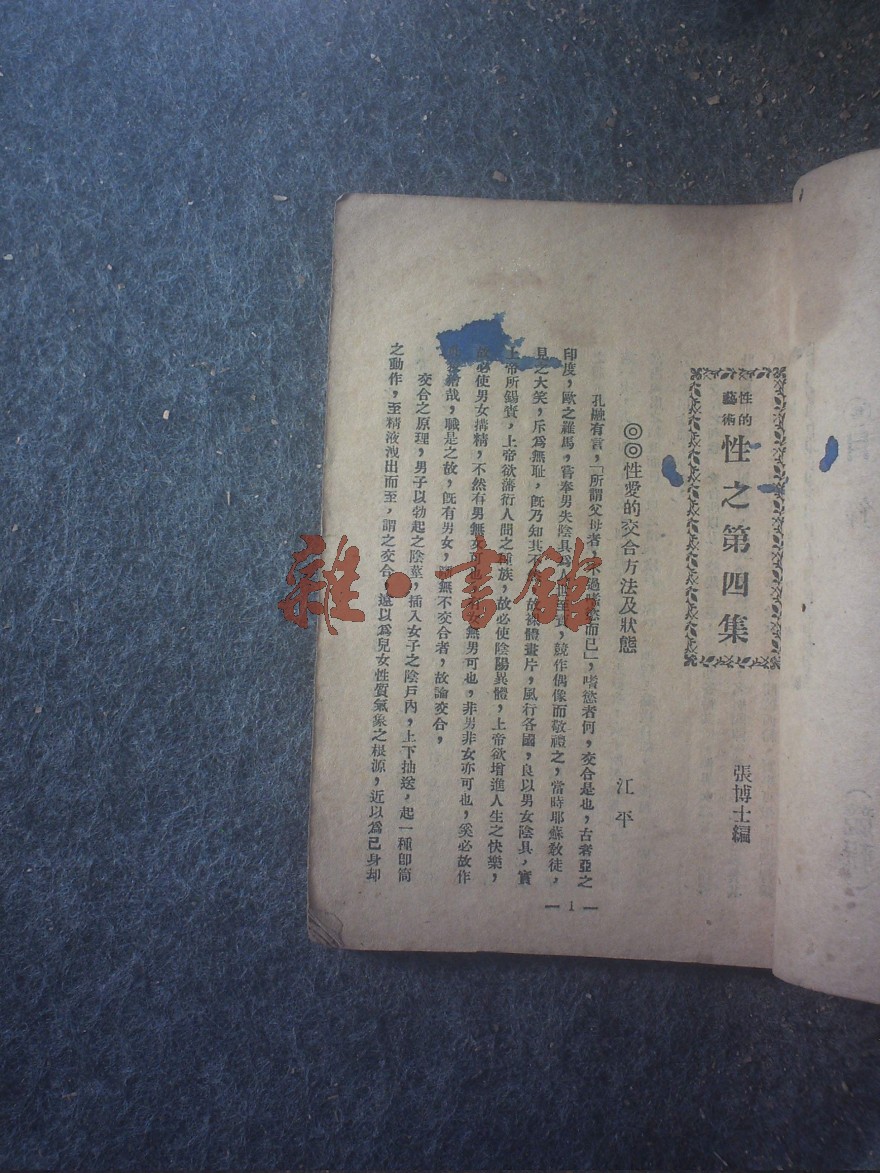 性的藝術
性之第四集
張博士編
◎◎性愛的交合方法及狀態
江平
孔融有言，「所謂父母者，過嗜慾而已」，嗜慾者何，交合是也，古者亞之
印度，歐之羅馬，嘗奉男失陰具為，競作偶像而敬禮之，當時耶蘇教徒，
見之大笑，斥為無耻，旣乃知其不，故裸體畫片，風行各國，良以男女陰具，實
上帝所錫賚，上帝欲蕃衍人間之種族，故必使陰陽異體，上帝欲增進人生之快樂，
故必使男女搆精，不然有男無女可也，有女無男可也，非男非女亦可也，奚必故作
繪哉，職是之故，旣有男女，無不交合者，故論交合，
交合之原理，男子以勃起之陰莖，插入女子之陰戶內，上下抽送，起一種卽簡
之動作，至精液洩出而至，謂之交合，遠以為兒女性質氣象之根源，近以為己身却
— 1 —
雜·書館